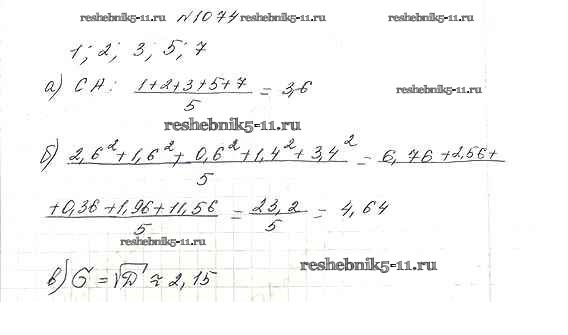 reshebnik5-11.ru №1074 reshebnik5-11.ru reshebnik5-11.ru
1; 2; 3; 5; 7
а) СА: (1+2+3+5+7)/5 = 3,6 reshebnik5-11.ru
reshebnik5-11.ru
б) (2,6² + 1,6² + 0,6² + 1,4² + 3,4²)/5 = 6,76 + 2,56 +
(+ 0,36 + 1,96 + 11,56)/5 = 23,2/5 = 4,64
reshebnik5-11.ru
в) σ = √D ≈ 2,15 reshebnik5-11.ru